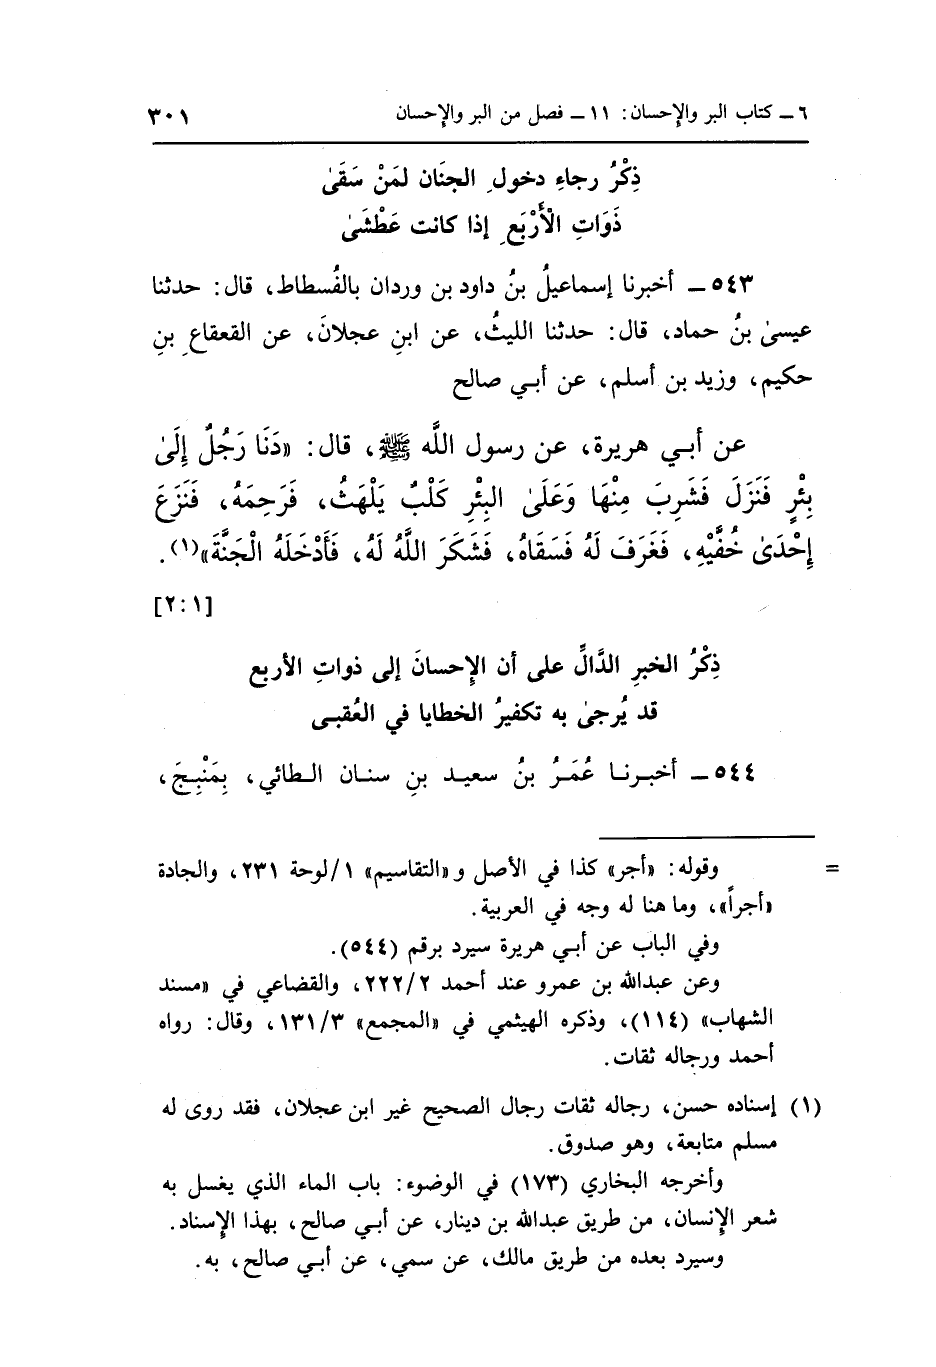 ٦ ـ كتاب البر والإحسان: ١١ ـ فصل من البر والإحسان ٣٠١
ذِكْرُ رجاءِ دخولِ الجنَان لمَنْ سَقَىٰ
ذَوَاتِ الْأَرْبَعِ إذا كانت عَطْشَىٰ
٥٤٣ ـ أخبرنا إسماعيلُ بنُ داود بن وردان بالفُسطاط، قال: حدثنا
عيسىٰ بنُ حماد، قال: حدثنا الليثُ، عن ابنِ عجلانَ، عن القعقاعِ بنِ
حكيم، وزيد بن أسلم، عن أبـي صالح
عن أبـي هريرة، عن رسول اللَّه ﷺ، قال: «دَنَا رَجُلٌ إِلَىٰ
بِئْرٍ فَنَزَلَ فَشَرِبَ مِنْهَا وَعَلَىٰ البِئْرِ كَلْبٌ يَلْهَثُ، فَرَحِمَهُ، فَنَزَعَ
إِحْدَىٰ خُفَّيْهِ، فَغَرَفَ لَهُ فَسَقَاهُ، فَشَكَرَ اللَّهُ لَهُ، فَأَدْخَلَهُ الْجَنَّةَ»(١).
[٢:١]
ذِكْرُ الخبرِ الدَّالِّ على أن الإِحسانَ إلى ذواتِ الأربع
قد يُرجىٰ به تكفيرُ الخطايا في العُقبـى
٥٤٤ ـ أخبـرنـا عُمَـرُ بنُ سعيـد بنِ سنـان الطائي، بِمَنْبِجَ،
= وقوله: «أجر» كذا في الأصل و«التقاسيم» ١/لوحة ٢٣١، والجادة
«أجراً»، وما هنا له وجه في العربية.
وفي الباب عن أبـي هريرة سيرد برقم (٥٤٤).
وعن عبدالله بن عمرو عند أحمد ٢٢٢/٢، والقضاعي في «مسند
الشهاب» (١١٤)، وذكره الهيثمي في «المجمع» ١٣١/٣، وقال: رواه
أحمد ورجاله ثقات.
(١) إسناده حسن، رجاله ثقات رجال الصحيح غير ابن عجلان، فقد روى له
مسلم متابعة، وهو صدوق.
وأخرجه البخاري (١٧٣) في الوضوء: باب الماء الذي يغسل به
شعر الإِنسان، من طريق عبدالله بن دينار، عن أبـي صالح، بهذا الإِسناد.
وسيرد بعده من طريق مالك، عن سمي، عن أبـي صالح، به.